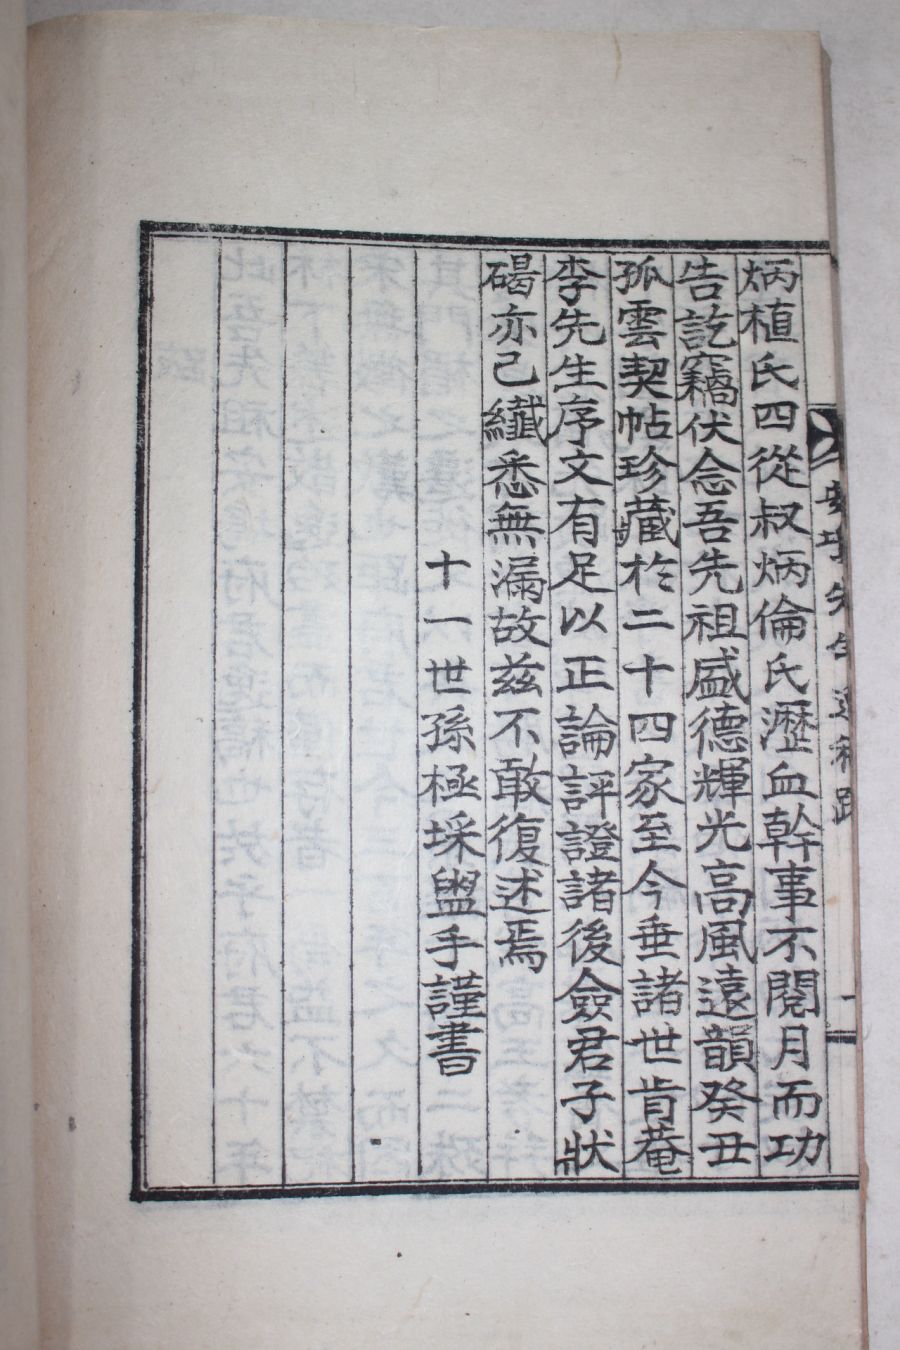 炳植氏四從叔炳倫氏瀝血幹事不閱月而功
告訖竊伏念吾先祖盛德輝光高風遠韻癸丑
孤雲契帖珍藏於二十四家至今垂諸世肯菴
李先生序文有足以正論評證諸後僉君子狀
碣亦己纖悉無漏故茲不敢復述焉
十一世孫極埰盥手謹書
先生逸稿跋
一